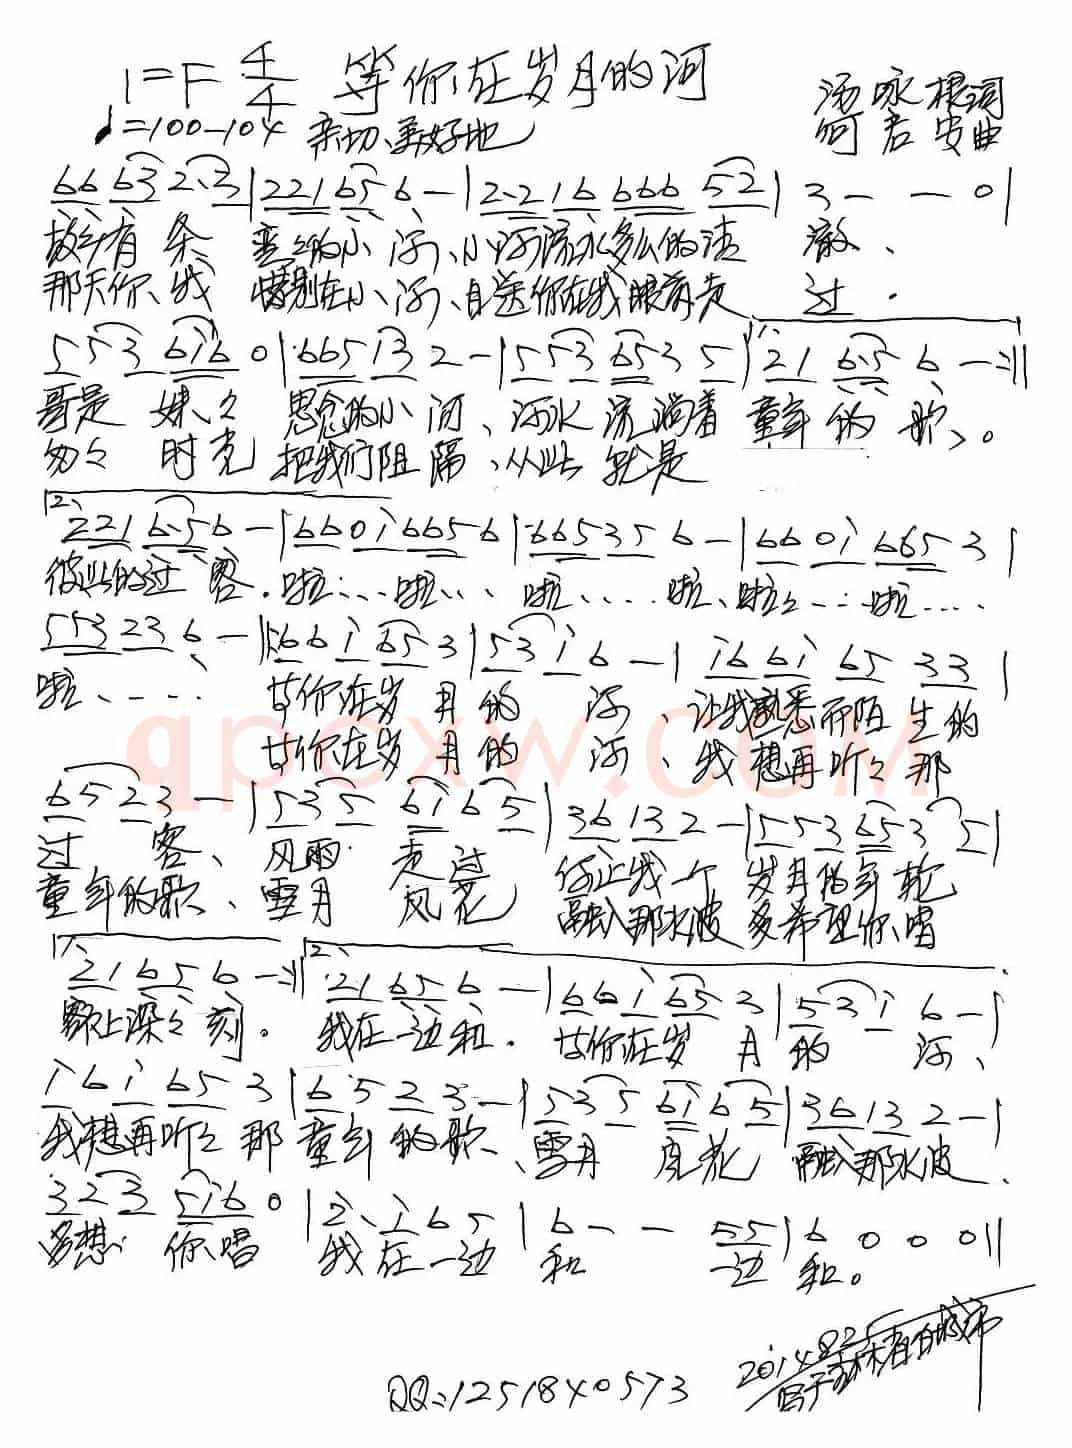 1=F 4/4 等你在岁月的河
汤咏根词
♩=100-104 亲切、美好地
何君安曲
66 63 2·3 | 221 65 6 - | 2·2 16 666 52 | 3 - - 0 |
故乡有条 弯弯的小河、小河流水多么的清澈、
那天你、我 惜别在小河、目送你在我眼前走过.
5 53 6i6 0 | 665 13 2 - | 5 53 653 5 | 1、 21 6·5 6 - :||
哥是妹々 思念的小河、河水流淌着童年的歌、。
匆々时克 把我们阻隔、从此就是
2、 221 6·5 6 - | 66 0i 665 6 | 665 35 6 - | 66 0i 665 3 |
彼此的过客. 啦:...啦... 啦.... 啦、啦々...啦....
553 23 6 - | 66 i 65 3 | 53 i 6 - | i6 6i 65 33 |
啦、.... 等你在岁月的河、让我熟悉而陌生的
等你在岁月的河、我想再听々那
65 23 - | 535 6i 65 | 36 13 2 - | 553 653 5 |
过客、风雨走过 你让我一个岁月的年轮
童年的歌、雪月风花 融入那水波 多希望你唱
1、 21 65 6 - :|| 2、 21 65 6 - | 66 i 65 3 | 53 i 6 - |
额上深々刻。 我在一边和. 等你在岁月的河、
i 6 i 65 3 | 6 5 2 3 - | 535 6i 65 | 36 13 2 - |
我想再听々那童年的歌、雪月风花 融入那水波.
32 3 5i6 0 | 2、i 6 5 | 6 - - 55 | 6 0 0 0 ||
多想你唱 我在一边和 一边和。
2014.8.25
QQ:1251840573
qpcxw.com